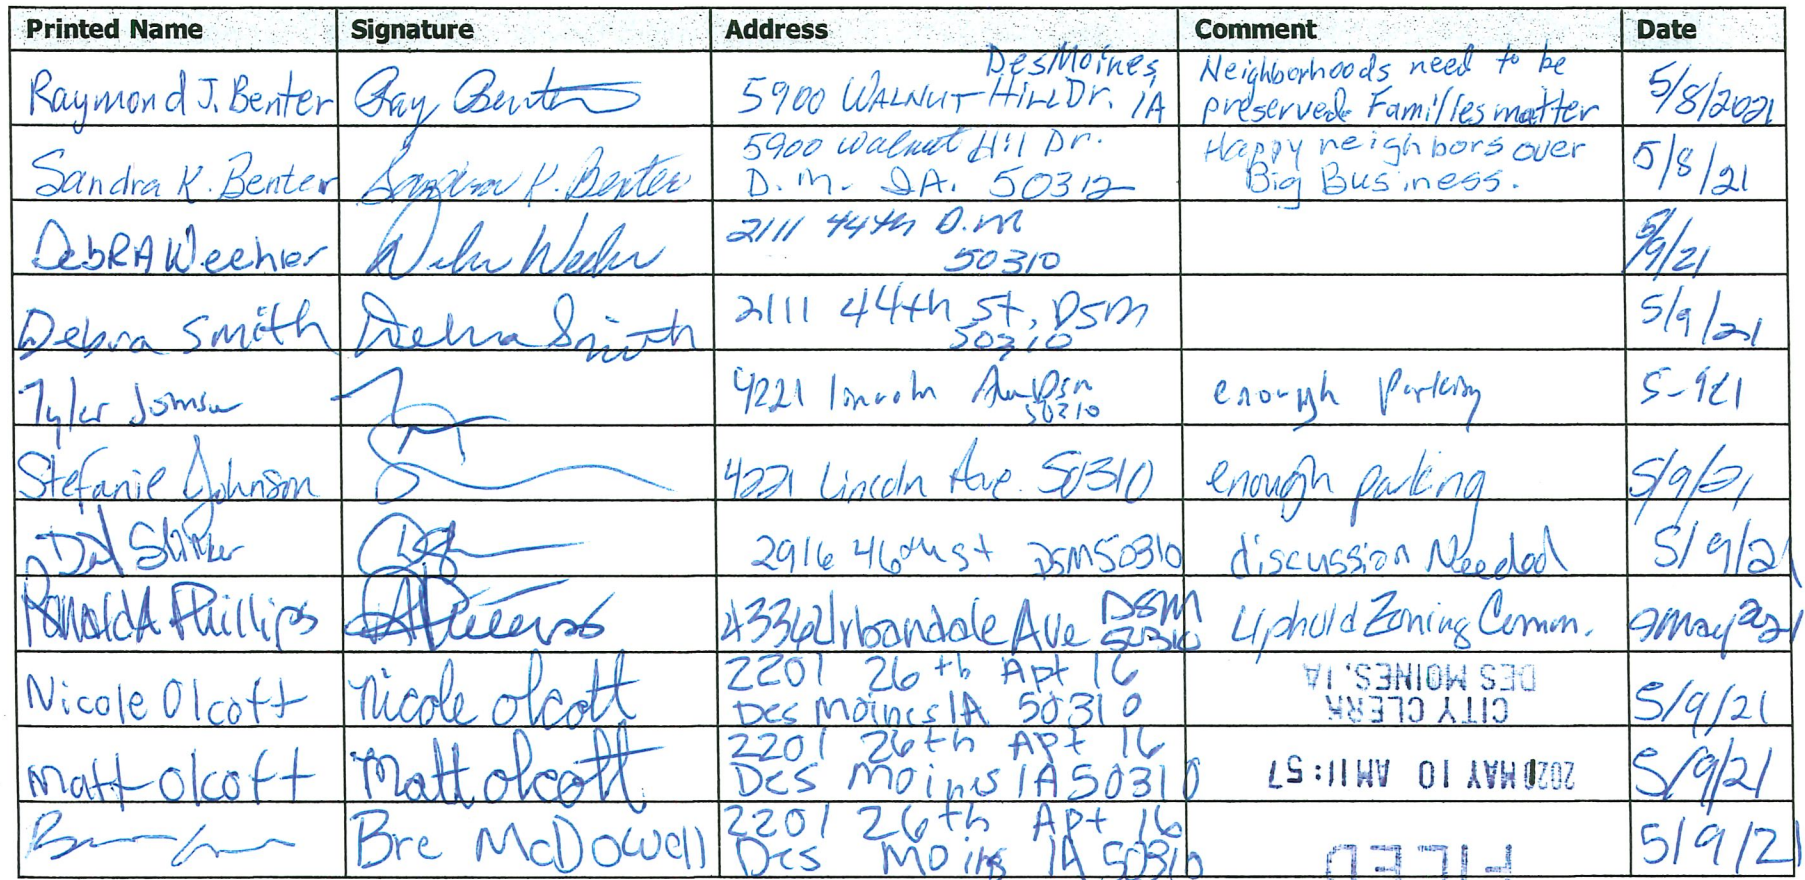 Printed Name Signature Address Comment Date
Raymond J. Benter Ray Benter 5900 WALNUT HILL Dr. Des Moines, IA Neighborhoods need to be preserved Families matter 5/8/2021
Sandra K. Benter Sandra K. Benter 5900 Walnut Hil Dr. D.M. IA. 50312 Happy neighbors over Big Business. 5/8/21
DebRA 2111 44th D.M 50310 5/9/21
Debra Smith Debra Smith 2111 44th St, DSM 50310 5/9/21
Tyler 4221 lincoln Ave Dsm 50310 enough Parking 5-9-21
Stefanie Johnson 4221 Lincoln Ave. 50310 enough parking 5/9/21
2916 46th st DSM 50310 discussion Needed 5/9/21
Ronald A Phillips 4336 Urbandale Ave DSM 50310 Uphold Zoning Comm. 9May2021
Nicole Olcott Nicole Olcott 2201 26th Apt 16 Des Moines IA 50310 5/9/21
DES MOINES, IA
CITY CLERK
Matt Olcott Matt Olcott 2201 26th APt 16 Des Moines IA 50310 5/9/21
MAY 10 AM 11:57
Bre McDowell 2201 26th Apt 16 Des Moins IA 50310 5/9/21
FILED